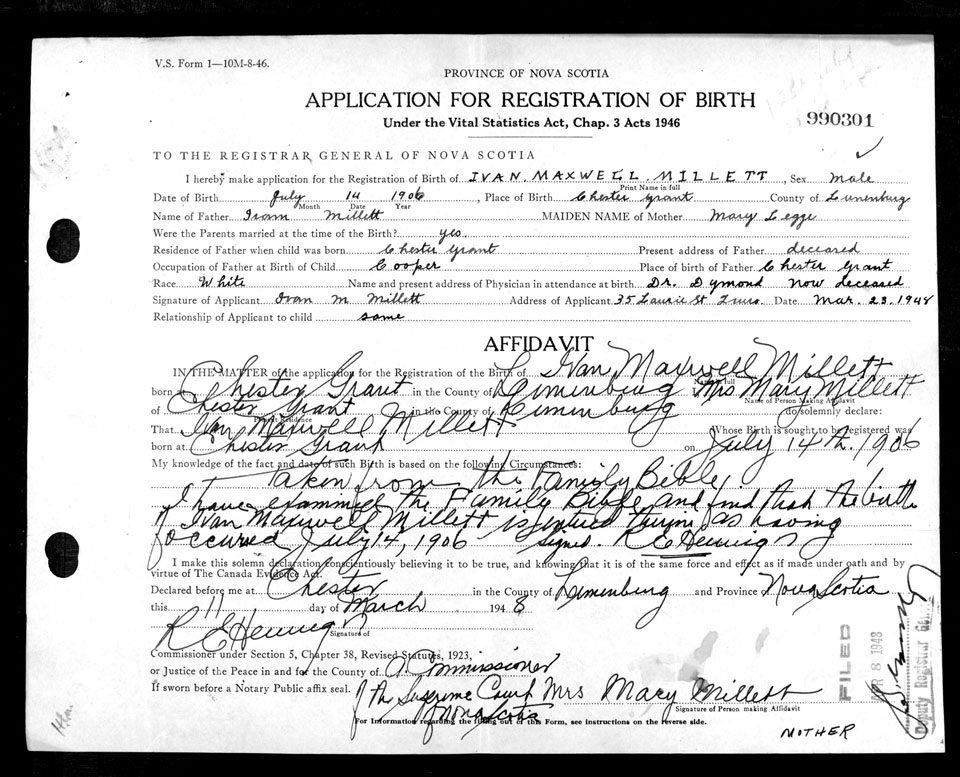 V.S. Form 1—10M-8-46.
PROVINCE OF NOVA SCOTIA
APPLICATION FOR REGISTRATION OF BIRTH
Under the Vital Statistics Act, Chap. 3 Acts 1946
990301
TO THE REGISTRAR GENERAL OF NOVA SCOTIA
I hereby make application for the Registration of Birth of IVAN. MAXWELL. MILLETT, Sex male
Print Name in full
Date of Birth July 14 1906, Place of Birth Chester Grant County of Lunenburg
Month Date Year
Name of Father Millett MAIDEN NAME of Mother Mary Legge
Were the Parents married at the time of the Birth? yes
Residence of Father when child was born Chester Grant Present address of Father deceased
Occupation of Father at Birth of Child Cooper Place of birth of Father Chester Grant
Race White Name and present address of Physician in attendance at birth Dr. Dymond now deceased
Signature of Applicant Ivan M. Millett Address of Applicant 35 Laurie St Truro. Date Mar. 23. 1948
Relationship of Applicant to child same
AFFIDAVIT
IN THE MATTER of the application for the Registration of the Birth of Ivan Maxwell Millett
Name in full
born at Chester Grant in the County of Lunenburg Mrs Mary Millett
Name of Person Making Affidavit
of Chester Grant in the County of Lunenburg do solemnly declare:
Residence
That Ivan Maxwell Millett Whose Birth is sought to be registered was
born at Chester Grant on July 14th. 1906
My knowledge of the fact and date of such Birth is based on the following Circumstances:
Taken from the Family Bible.
I have examined the Family Bible and find that the birth
of Ivan Maxwell Millett is as having
occurred July 14, 1906 Signed. R E Hennigar
I make this solemn declaration conscientiously believing it to be true, and knowing that it is of the same force and effect as if made under oath and by
virtue of The Canada Evidence Act.
Declared before me at Chester in the County of Lunenburg and Province of Nova Scotia
this 11 day of March 1948
R E Hennigar
Signature of
Commissioner under Section 5, Chapter 38, Revised Statutes, 1923,
or Justice of the Peace in and for the County of A Commissioner
If sworn before a Notary Public affix seal. of the Supreme Court Mrs Mary Millett
of Nova Scotia
Signature of Person making Affidavit
For Information regarding the filling out of this Form, see instructions on the reverse side.
MOTHER
FILED
APR 8 1948
Deputy Registrar Gen.